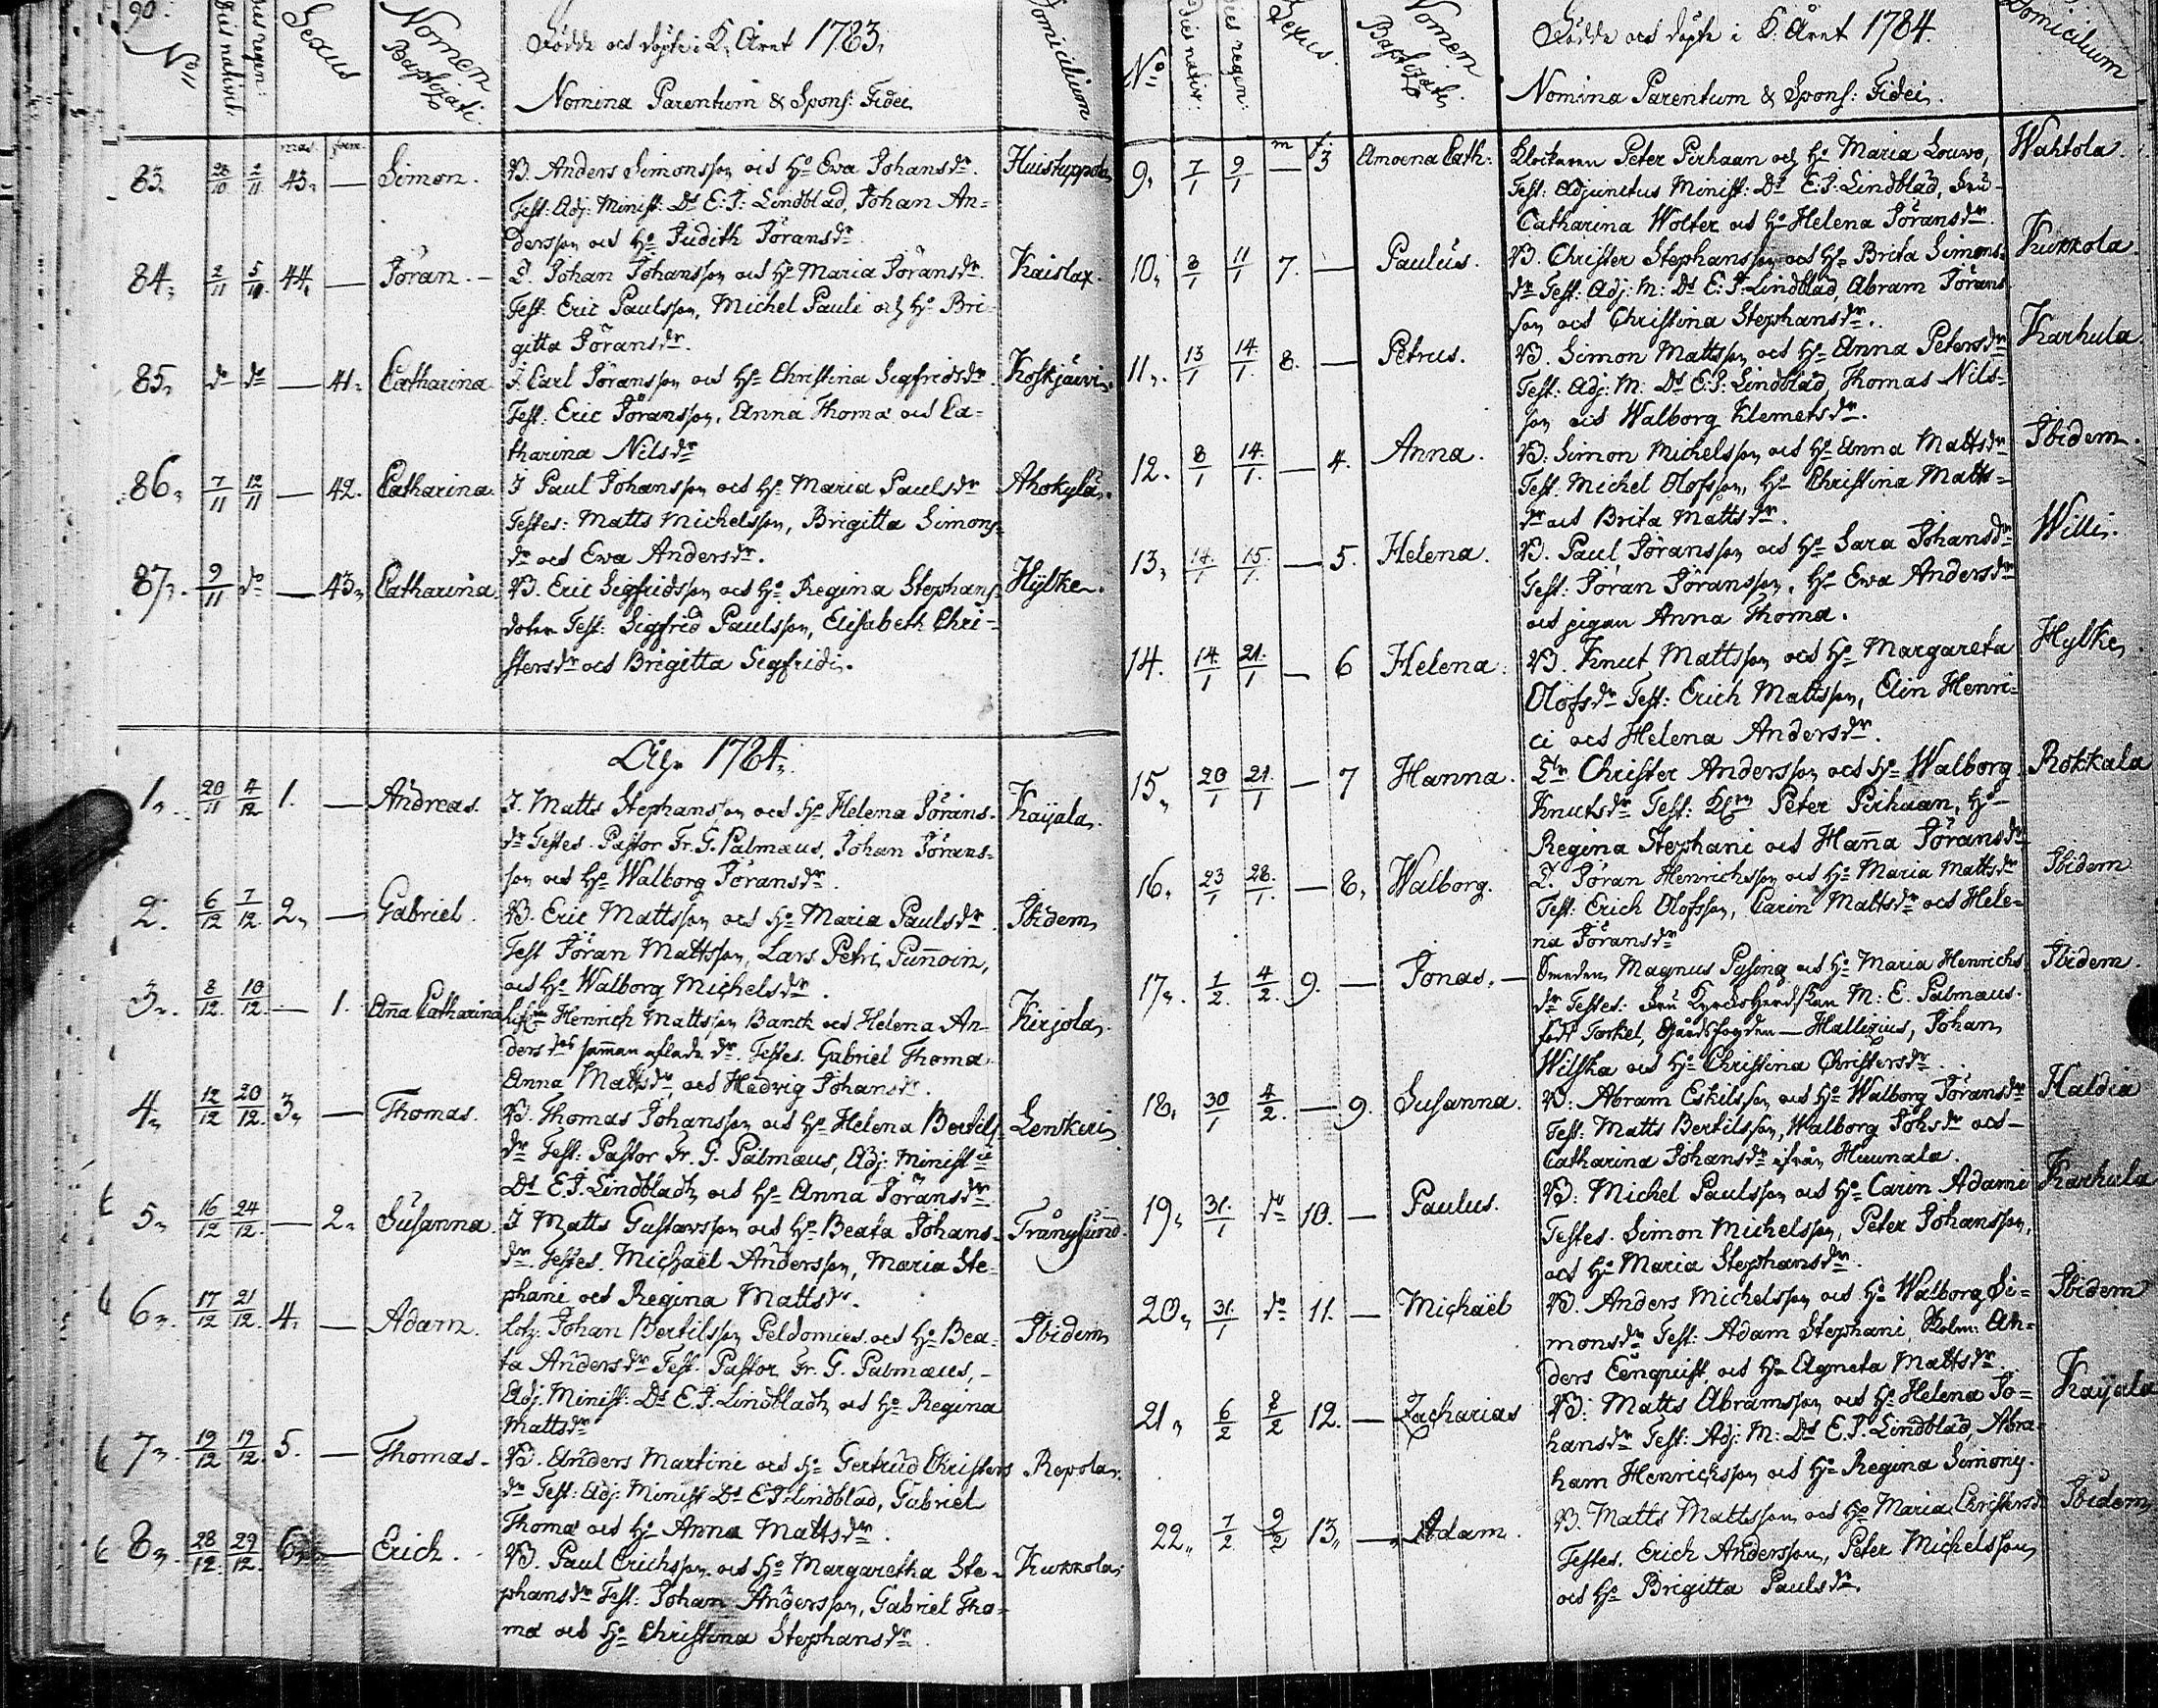 90.
No
Dies nativit.
Dies regen:
Sexus
Nomen Baptizati.
Födde och döpte i K. Året 1783.
Nomina Parentum & Spons: Fidei
Domicilium
mas. foem.
83. 28/10 2/11 43. — Simon. B. Anders Simonsson och H: Ewa Johansdr. Huistuppola
Test: Adj: Minist: Ds E: J: Lindblad, Johan An=
dersson och H: Judith Jöransdr.
84. 2/11 5/11 44. — Jöran. — T. Johan Johansson och H: Maria Jöransdr. Kaislax.
Test: Eric Paulsson, Michel Pauli och H: Bri=
gitta Jöransdr.
85. do do — 41. Catharina. I. Carl Jöransson och H: Christina Sigfridsdr. Koskjärvi.
Test: Eric Jöransson, Anna Thomæ och Ca=
tharina Nilsdr
86. 7/11 12/11 — 42. Catharina. I Paul Johansson och H: Maria Paulsdr Ahokylä.
Testes: Matts Michelsson, Brigitta Simons=
dr och Ewa Andersdr.
87. 9/11 do — 43. Catharina. B. Eric Sigfridsson och H: Regina Stephans= Hylke.
doter Test: Sigfrid Paulsson, Elisabeth Chri=
stersdr och Brigitta Sigfridi.
1784.
1. 20/11 4/12 1. — Andreas. I. Matts Stephansson och H: Helena Jörans= Kaijala.
dr Testes. Pastor Fr. G. Palmæus, Johan Jörans=
son och H: Walborg Jöransdr.
2. 6/12 7/12 2. — Gabriel. B. Eric Mattsson och H: Maria Paulsdr. Ibidem
Test Jöran Mattsson, Lars Petri Punnoin,
och H: Walborg Michelsdr.
3. 8/12 10/12 — 1. Anna Catharina Henrich Mattsson Banck och Helena An= Kirjola.
ders samman aflade dr. Testes. Gabriel Thomæ.
Anna Mattsdr och Hedvig Johansdr.
4. 12/12 20/12 3. — Thomas. B. Thomas Johansson och H: Helena Bertils= Lenkeri
dr Test: Pastor Fr. G. Palmæus, Adj: Minist:
Ds E. J. Lindbladh, och H: Anna Jöransdr
5. 16/12 24/12 — 2. Susanna. I Matts Gustavsson och H: Beata Johans= Trångsund.
dr Testes. Michaël Andersson, Maria Ste=
phani och Regina Mattsdr.
6. 17/12 21/12 4. — Adam. Johan Bertilsson Peldomies och H: Bea= Ibidem
ta Andersdr Test: Pastor Fr. G. Palmæus, —
Adj. Minist: Ds E. J. Lindbladh och H: Regina
Mattsdr
7. 19/12 19/12 5. — Thomas. B. Anders Martini och H: Gertrud Christers Repola.
dr Test: Adj: Minist Ds E J Lindblad, Gabriel
Thomæ och H: Anna Mattsdr.
8. 28/12 29/12 6. — Erich. B. Paul Erichsson och H: Margaretha Ste= Kukkola.
phansdr Test: Johan Andersson, Gabriel Tho=
mæ och H: Christina Stephansdr.
No
Dies nativ:
Dies regen:
Sexus.
Nomen Baptizati.
Födde och döpte i K. Året 1784.
Nomina Parentum & Spons: Fidei.
Domicilium
m f:
9. 7/1 9/1 — 3 Amoena Cath: Klockaren Peter Pirhaan och H: Maria Louwo, Wahtola.
Test: Adjunctus Minist: Ds E: J: Lindblad, Fru —
Catharina Wolter och H: Helena Jöransdr.
10. 8/1 11/1 7. — Paulus. B. Christer Stephansson och H: Brita Simons= Kukkola.
dr Test: Adj: M: Ds E: J. Lindblad, Abram Jörans
son och Christina Stephansdr.
11. 13/1 14/1 8. — Petrus. B. Simon Mattsson och H: Anna Petersdr Karhula.
Test: Adj: M: Ds E: J: Lindblad, Thomas Nils=
son och Walborg Klemetsdr.
12. 8/1 14/1 — 4. Anna. B: Simon Michelsson och H: Anna Mattsdr Ibidem.
Test: Michel Olofsson, H: Christina Matts=
dr och Brita Mattsdr.
13. 14/1 15/1 — 5. Helena. B. Paul Jöransson och H: Sara Johansdr Willi.
Test: Jöran Jöransson, H: Ewa Andersdr
och pigan Anna Thomæ.
14. 14/1 21/1 — 6 Helena. B. Knut Mattsson och H: Margareta Hylke
Olofsdr Test: Erich Mattsson, Elin Henri=
ci och Helena Andersdr.
15. 20/1 21/1 — 7 Hanna. Christer Andersson och H: Walborg Rokkala
Knutsdr Test: Peter Pirhaan, H: —
Regina Stephani och Hanna Jöransdr
16. 23/1 28/1 — 8. Walborg. T. Jöran Henrichsson och H: Maria Mattsdr Ibidem
Test: Erich Olofsson, Carin Mattsdr och Hele=
na Jöransdr
17. 1/2 4/2 9. — Jonas. — Smeden Magnus Pysing och H: Maria Henrichs Ibidem.
dr Testes: Fru KyrckoHerdskan M: E. Palmæus.
född Forkel, Gårdsfogden — Hallizius, Johan
Wilska och H: Christina Christersdr.
18. 30/1 4/2 — 9. Susanna. B. Abram Eskilsson och H: Walborg Jöransdr Haldia
Test: Matts Bertilsson, Walborg Johsdr och —
Catharina Johansdr ifrån Huunala.
19. 31/1 do 10. — Paulus. B: Michel Paulsson och H: Carin Adami Karhula
Testes. Simon Michelsson, Peter Johansson,
och H: Maria Stephansdr.
20. 31/1 do 11. — Michaël B. Anders Michelsson och H: Walborg Si= Ibidem
monsdr Test: Adam Stephani, An=
ders Eenquist, och H: Agneta Mattsdr.
21. 6/2 8/2 12. — Zacharias B: Matts Abramsson och H: Helena Jo= Kaijala
hansdr Test: Adj: M: Ds E. J. Lindblad, Abra=
ham Henrichsson och H: Regina Simonis.
22. 7/2 9/2 13. — Adam. B. Matts Mattsson och H: Maria Christersdr Ibidem
Testes. Erich Andersson, Peter Michelsson
och H: Brigitta Paulsdr.